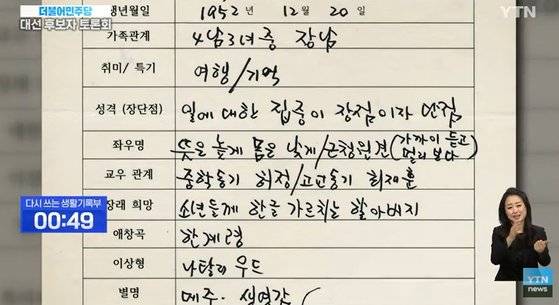 더불어민주당
대선 후보자 토론회
YTN
생년월일 1952 12 20
가족관계 4남3녀중 장남
취미/ 특기 여행/기억
성격 (장단점) 일에 대한 집중이 장점이자 단점
좌우명 뜻을 높게 몸을 낮게/근청원견(가까이 듣고 멀리 보다)
교우 관계 중학동기 허정/고교동기 최재훈
장래 희망 소년들께 한글 가르치는 할아버지
애창곡 한계령
이상형 나탈리 우드
별명 메주· 생영감
다시 쓰는 생활기록부
00:49
YTN
news